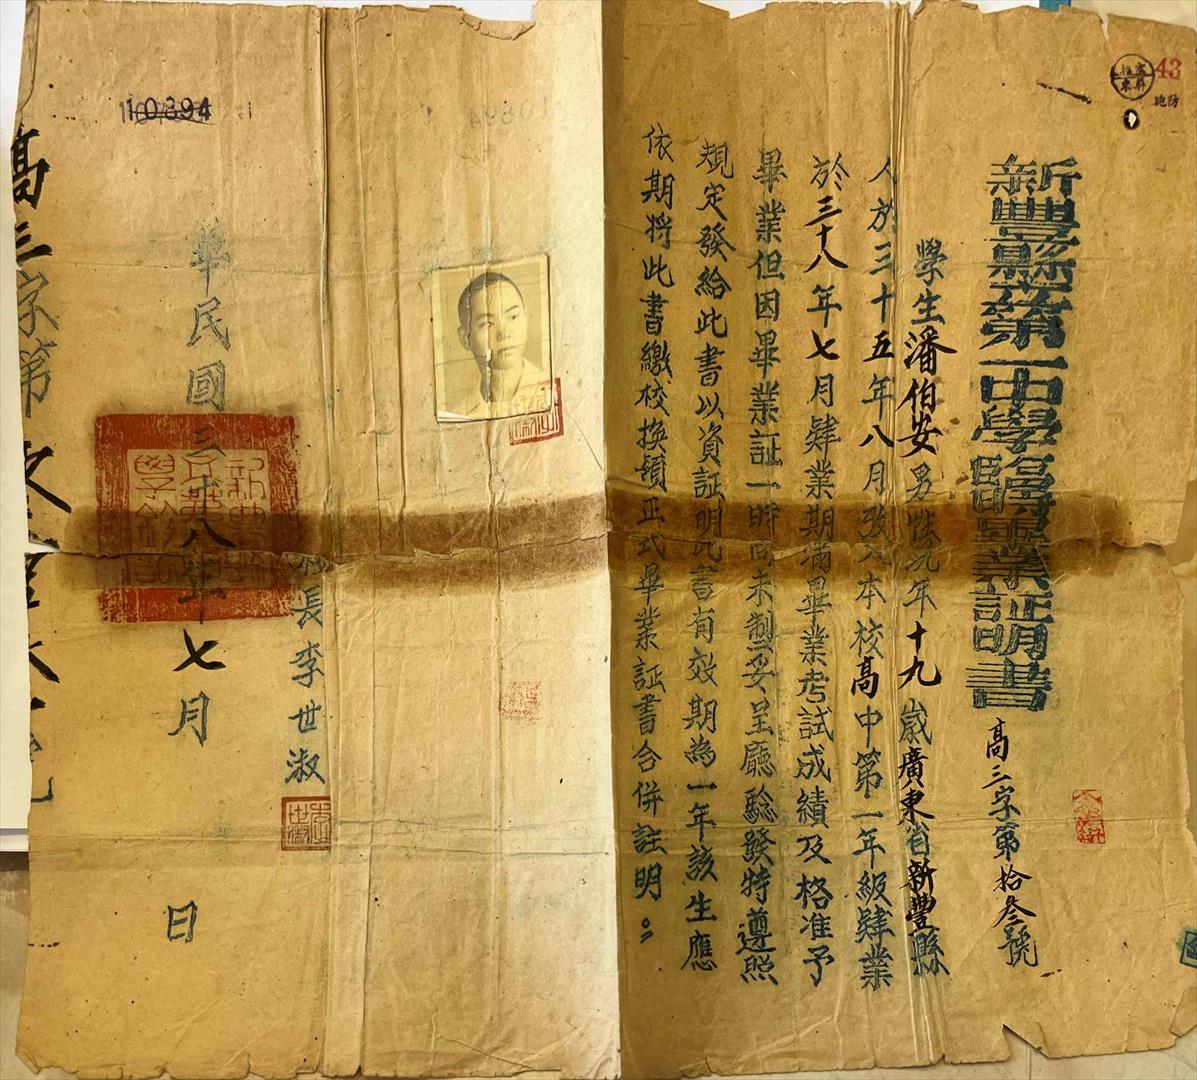 43
防砲
新豐縣立第一中學臨時畢業証明書
高三字第拾叁號
學生潘伯安男性現年十九歲廣東省新豐縣
人於三十五年八月攷入本校高中第一年級肄業
於三十八年七月肄業期滿畢業考試成績及格准予
畢業但因畢業証一時尚未製妥呈廳驗發特遵照
規定發給此書以資証明此書有效期為一年該生應
依期將此書繳校換領正式畢業証書合併註明。
校長李世淑
華民國三十八年七月 日
10894
高三字第